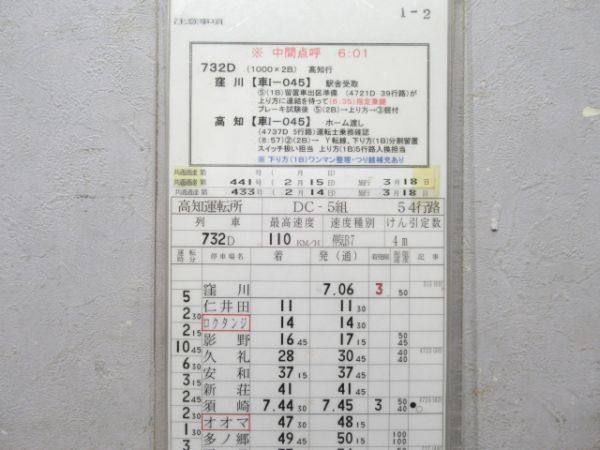 注意事項
1-2
※ 中間点呼 6:01
732D (1000×2B) 高知行
窪川【車I-045】 駅舎受取
⑤(1B)留置車出区準備 (4721D 39行路)が
上り方に連結を待って(6:35)指定乗継
ブレーキ試験後 ⑤(2B)→上り方→③据付
高知【車I-045】 ホーム渡し
(4737D 5行路)運転士乗務確認
(8:57)②(2B)→ Y転線、下り方(1B)分割留置
スイッチ扱い担当 上り方(1B)5行路入換担当
※ 下り方(1B)ワンマン整理・つり銭補充あり
共通通達 第 号 ( 月 日) 施行 月 日
共通通達 第 441 号 ( 2月 15日) 施行 3月 18日
共通通達 第 433 号 ( 2月 14日) 施行 3月 18日
高知運転所 DC-5組 54行路
列車 最高速度 速度種別 けん引定数
732D 110 KM/H 停気B7 4m
運転時分 停車場名 着 発(通) 着発線 制限速度 記事
窪川 7.06 3 50
5
仁井田 11 11 30
2 30
ロクタンジ 14 14 30
2 15
影野 16 45 17 15 50 45
10 45
久礼 28 30 45 40 40
6 30
安和 37 15 37 45
3 15
新荘 41 41 45
2 45
須崎 7.44 30 7.45 3 50 40
2 30
オオマ 47 30 48 15
1 30
多ノ郷 49 45 50 15 100 100